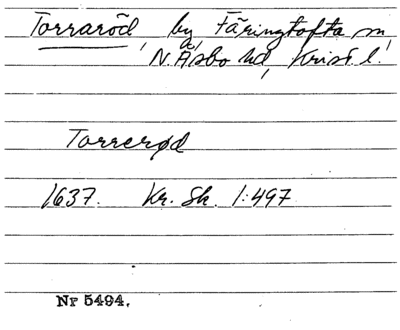 Torraröd, by, Färingtofta sn,
N. Åsbo hd, Krist. l.
Torrerød
1637. Kr. Sk. 1:497
Nr 5494.